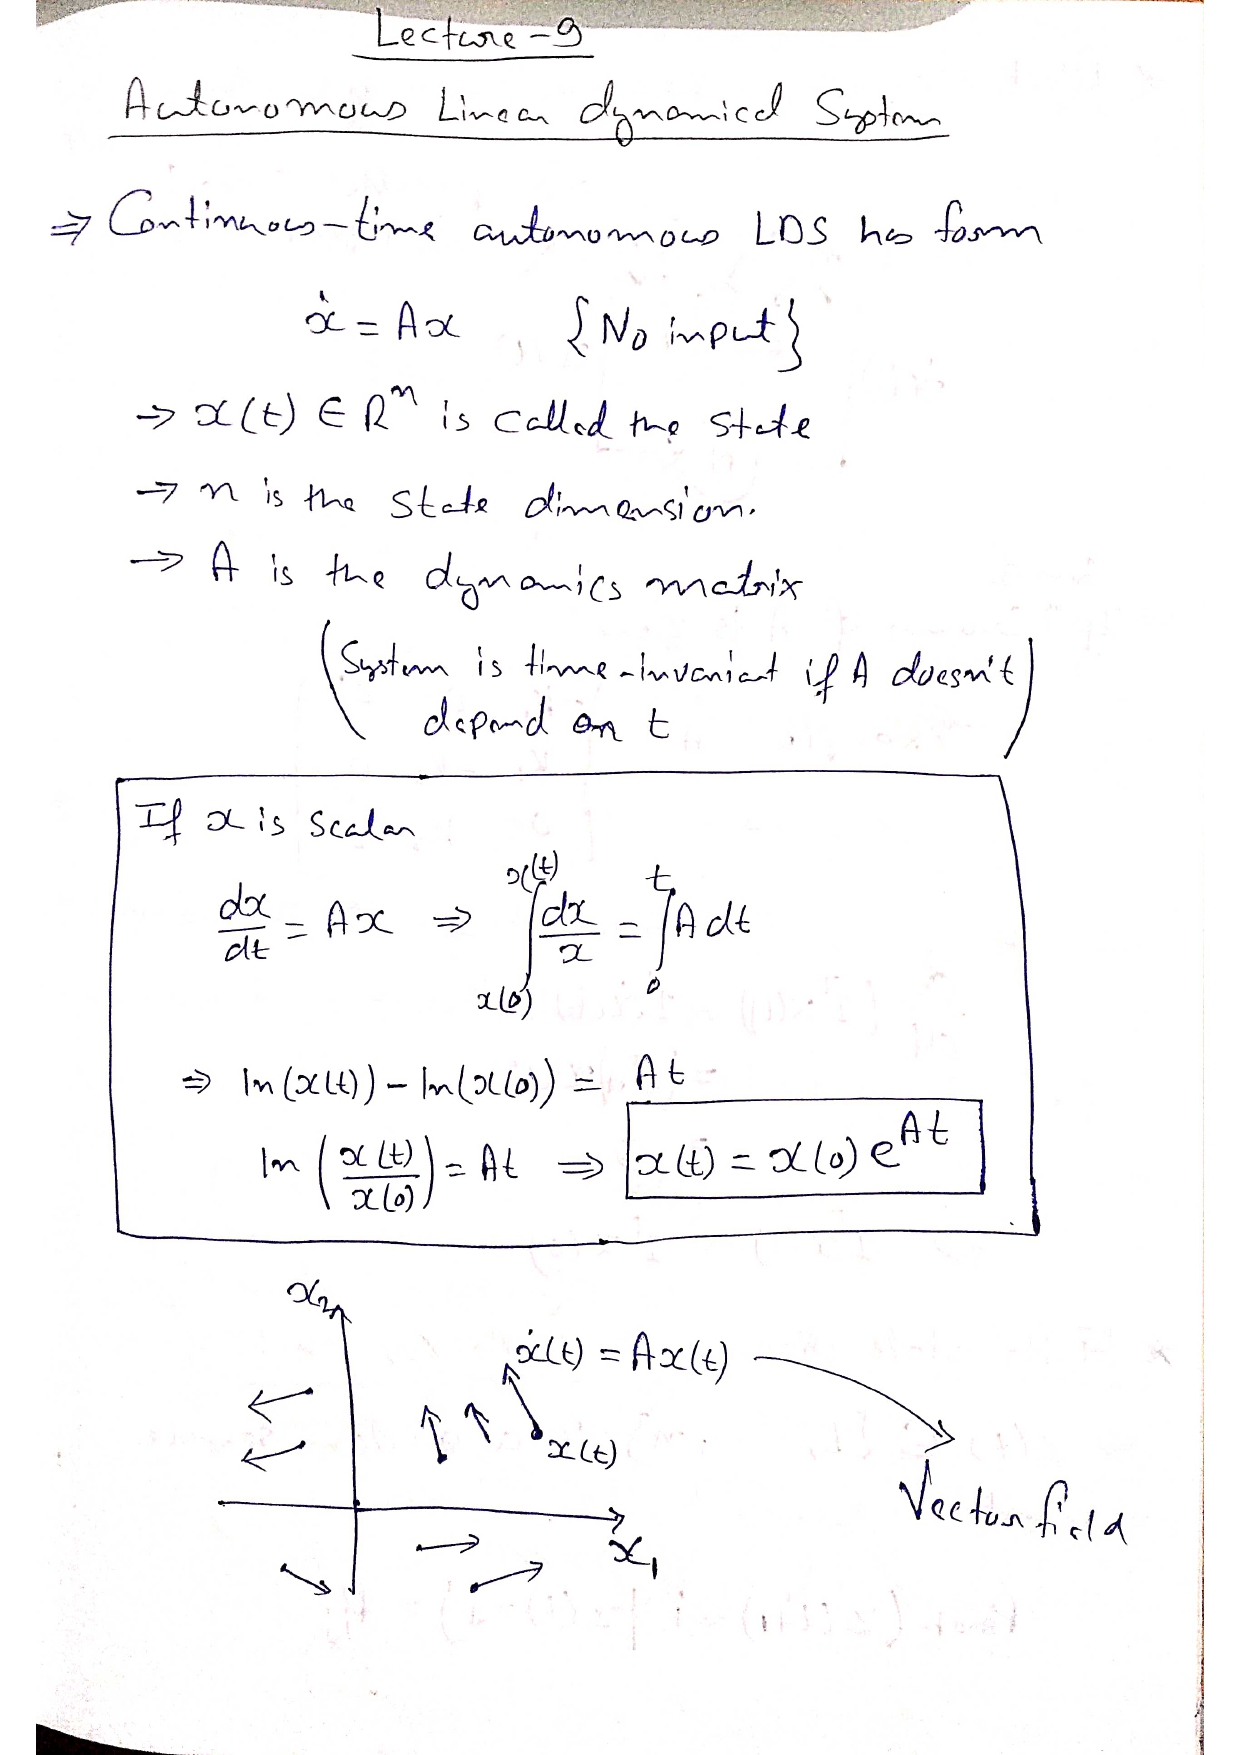 Lecture-9
Autonomous Linear dynamical System
⇒ Continuous-time autonomous LDS has form
ẋ = Ax {No input}
→ x(t) ∈ Rⁿ is called the state
→ n is the state dimension.
→ A is the dynamics matrix
(System is time-invariant if A doesn't
depend on t)
If x is scalar
dx/dt = Ax ⇒ ∫_{x(0)}^{x(t)} dx/x = ∫_0^t A dt
⇒ ln(x(t)) - ln(x(0)) = At
ln(x(t)/x(0)) = At ⇒ x(t) = x(0) e^{At}
x₂
ẋ(t) = Ax(t)
x(t)
Vector field
x₁